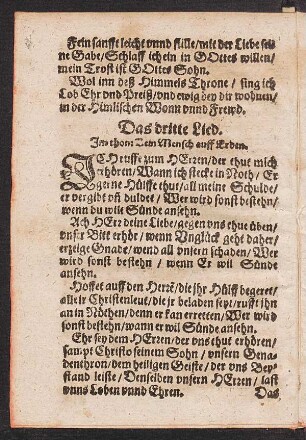 Fein sanfft leicht vnnd stille/mit der Liebe sei-
ne Gabe/Schlaff ich ein in GOttes willen/
mein Trost ist GOttes Sohn.
Wol inn deß Himmels Throne / sing ich
Lob Ehr vnd Preiß/vnd ewig bey dir wohnen/
in der Himlischen Wonn vnnd Frewd.
Das dritte Lied.
Im thon: Dem Mensch auff Erden.
ICh ruffe zum HErzen/der thut mich
erhören/Wann ich stecke in Noth/ Er
gerne Hülffe thut/all meine Schulde/
er vergibt vñ duldet / Wer wird sonst bestehn/
wenn du wilt Sünde ansehn.
Ach HErz deine Liebe/gegen vns thue üben/
vnser Bitt erhör / wenn Vnglück geht daher/
erzeige Gnade/wend all vnsern schaden/Wer
wird sonst bestehn / wenn Er wil Sünde
ansehn.
Hoffet auff den Herz/die jhr Hülff begeret/
alleir Christenleut/die jr beladen seyt/rufft jhn
an in Nöthen/denn er kan erretten/Wer wird
sonst bestehn/wann er wil Sünde ansehn.
Ehr sey dem HErzen/der vns thut erhören/
sampt Christo seinem Sohn / vnsern Gena-
denthron/dem heiligen Geiste/der vns Bey-
stand leiste / Denselben vnsern HErzen / last
vnns Loben vnnd Ehren.
Das